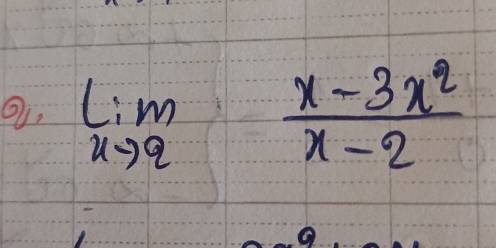 2. Lim x→2 (x - 3x²)/(x - 2)